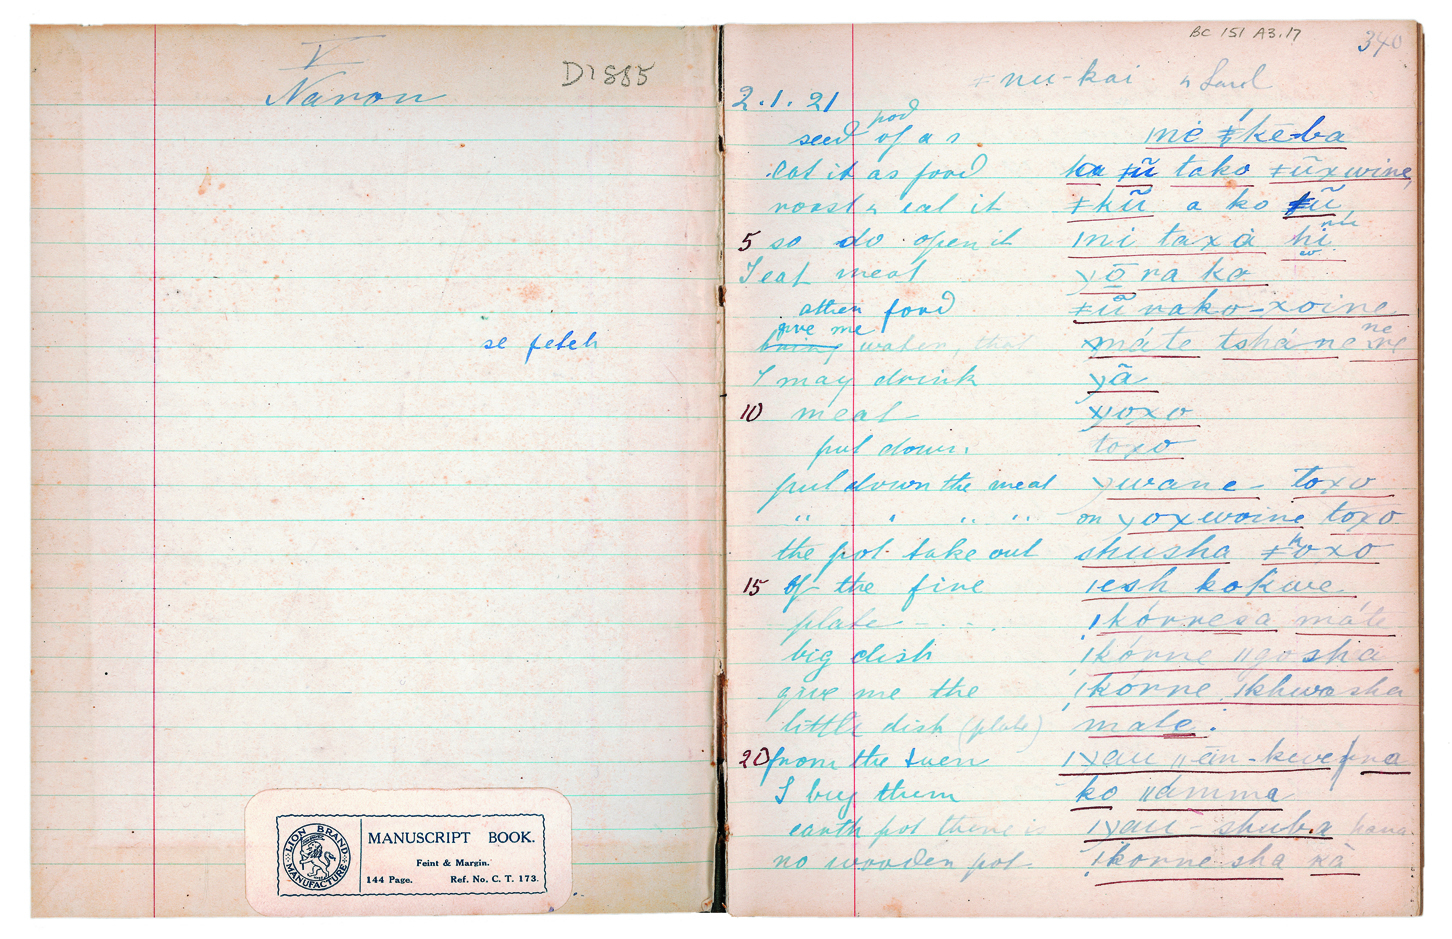 V
Naron
D1885
se fetch
LION BRAND
MANUFACTURE
MANUSCRIPT BOOK.
Feint & Margin.
144 Page. Ref. No. C. T. 173.
BC 151 A3.17
340
ǂ nu-kai
2.1.21
pod
seed of a ǀne ǂkē-ba
eat it as food ka ǂũ tako ǂũxwine,
roast & eat it ǂkũ a ko ǂũ
5 so do open it ǀni taxà hi
I eat meat ɣō ra ko
other food ǂũ rako-xoine
give me
bring water, that máte tshá ne
I may drink ɣã
10 meat ɣoxo
put down. toxo
put down the meat ɣwane - toxo
" " " " on ɣoxwoine toxo
the pot take out shusha ǂʰoxo
15 of the fire ǀesh kokwe
plate - . - . ǃkórnesa máte
big dish ǃkórne ǁgosha
give me the ǃkórne ǀkhwasha
little dish (plate) mate.
20 from the ǀɣau ǁãn-kwe ǀna
I buy them ko ǁámma
earth pot there is ǀɣau - shuba
no wooden pot ǃkorne sha kà